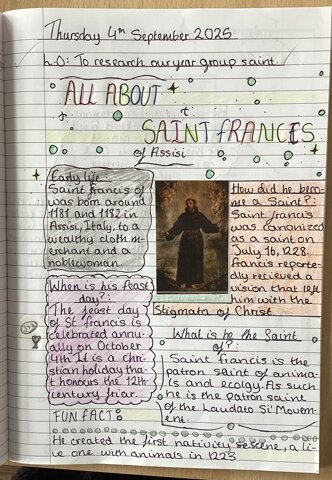 Thursday 4th September 2025
L.O: To research our year group saint.
ALL ABOUT
SAINT FRANCIS
of Assisi
Early life
Saint francis of
was born around
1181 and 1182 in
Assisi, Italy, to a
wealthy cloth m-
erchant and a
noblewoman.
How did he beco-
me a Saint?:
Saint francis
was canonized
as a saint on
July 16, 1228.
Francis reporte-
dly recieved a
vision that left
him with the
Stigmata of Christ.
When is his feast
day?:
The feast day
of St francis is
celebrated annu-
ally on October
4th. It is a Chr-
istian holiday tha-
t honours the 12th-
century friar.
What is he the Saint
of?:
Saint francis is the
patron saint of anima-
ls and ecology. As such
he is the patron saint
of the Laudato Si' Movem-
ent.
FUN FACT:
He created the first nativity scene, a li-
ve one with animals in 1223